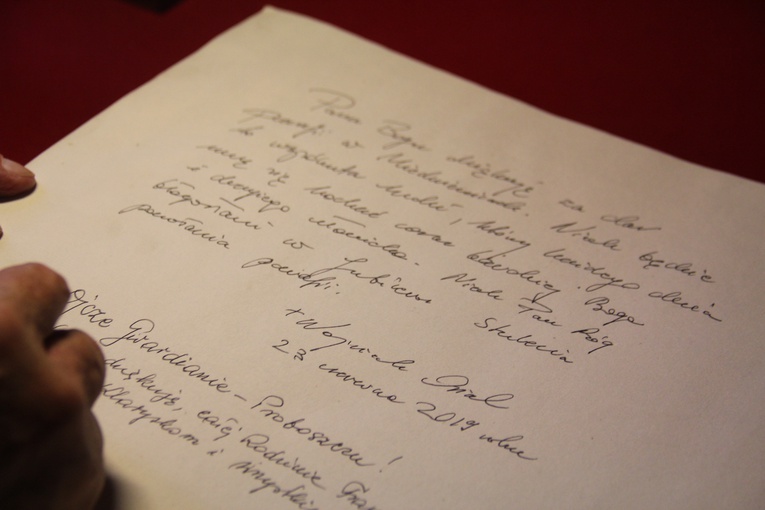 Panu Bogu dziękuję za dar
parafii w Niedźwiedziu. Niech będzie
to wspólnota ludzi, którzy każdego dnia
uczą się kochać coraz bardziej Boga
i drugiego człowieka. Niech Pan Bóg
błogosławi w Jubileuszu Stulecia
powstania parafii.
+ Wojciech Osial
23 czerwca 2019 roku
Ojcze Gwardianie – Proboszczu!
dziękuję, całej Rodzinie
Klaryskom i wszystkim